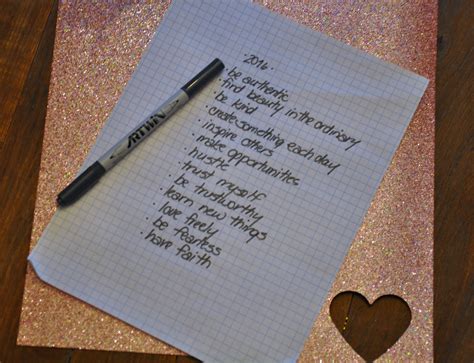 · 2016 ·
· be authentic
· find beauty in the ordinary
· be kind
· create something each day
· inspire others
· make opportunities
· hustle
· trust myself
· be trustworthy
· learn new things
· love freely
· be fearless
· have faith